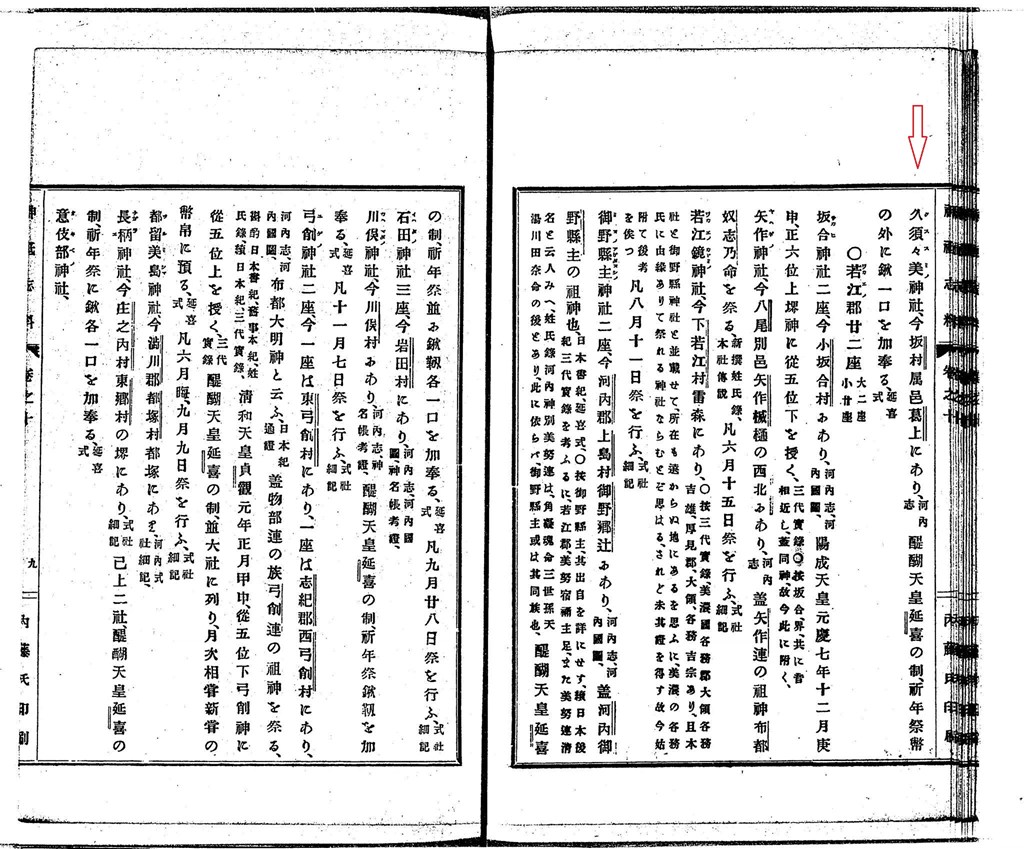 久須々美神社、今坂村属邑葛上にあり、河内志醍醐天皇延喜の制、祈年祭幣
の外に鍬一口を加奉る、延喜式
〇若江郡廿二座大二座小廿座
坂合神社二座、今小坂合村にあり、河内志、河内國圖、陽成天皇元慶七年十二月庚
申、正六位上堺神に從五位下を授く、三代實錄〇按坂合界、共に音相近し、蓋同神、故今此に附く、
矢作神社、今八尾別邑矢作椷樋の西北にあり、河内志蓋矢作連の祖神布都
奴志乃命を祭る、新撰姓氏錄、本社傳説凡六月十五日祭を行ふ、式社細記
若江鏡神社、今下若江村雷森にあり、〇按三代實錄、美濃國各務郡大領各務吉雄、厚見郡大領、各務吉宗あり、且本
社と御野縣神社と並載せて、所在も遠からぬ地にあるを思ふに、美濃の各務氏に由縁ありて祭れる神社ならむとぞ思はる、されど未其證を得ず故今姑
附て後考を俟つ凡八月十一日祭を行ふ、式社細記
御野縣主神社二座、今河内郡上島村御野郷辻にあり、河内志、河内國圖、蓋河内御
野縣主の祖神也、日本書紀、延喜式、〇按御野縣主、其出自を詳にせず、續日本後紀三代實錄を考ふるに若江郡、美努宿禰主足、また美努連清
名と云人みへ、姓氏錄河内神別美努連は、角凝魂命三世孫天湯川田奈命の後とあり、此に依らバ、御野縣主或は其同族也、醍醐天皇延喜
の制、祈年祭並に鍬靱各一口を加奉る、延喜式凡九月廿八日祭を行ふ、式社細記
石田神社三座、今岩田村にあり、河内志、河内國圖、神名帳考證、
川俣神社、今川俣村にあり、河内志、神名帳考證、醍醐天皇延喜の制、祈年祭鍬靱を加
奉る、延喜式凡十一月七日祭を行ふ、式社細記
弓削神社二座、今一座は東弓削村にあり、一座は志紀郡西弓削村にあり、
河内志、河内國圖布都大明神と云ふ、日本紀通證蓋物部連の族弓削連の祖神を祭る、
日本書紀、舊事本紀、姓氏錄、續日本紀、三代實錄、清和天皇貞觀元年正月甲申、從五位下弓削神に
從五位上を授く、三代實錄醍醐天皇延喜の制並大社に列り、月次相嘗新嘗の
幣帛に預る、延喜式凡六月晦、九月九日祭を行ふ、式社細記
都留美島神社、今澁川郡都塚村都塚にあり、河内式社細記、
長柄神社、今庄之内村東郷村の堺にあり、式社細記已上二社、醍醐天皇延喜の
制、祈年祭に鍬各一口を加奉る、延喜式
意伎部神社、
神祇志料
卷之十
九
内藤氏印刷